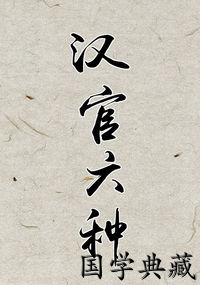 汉官六种
国学典藏